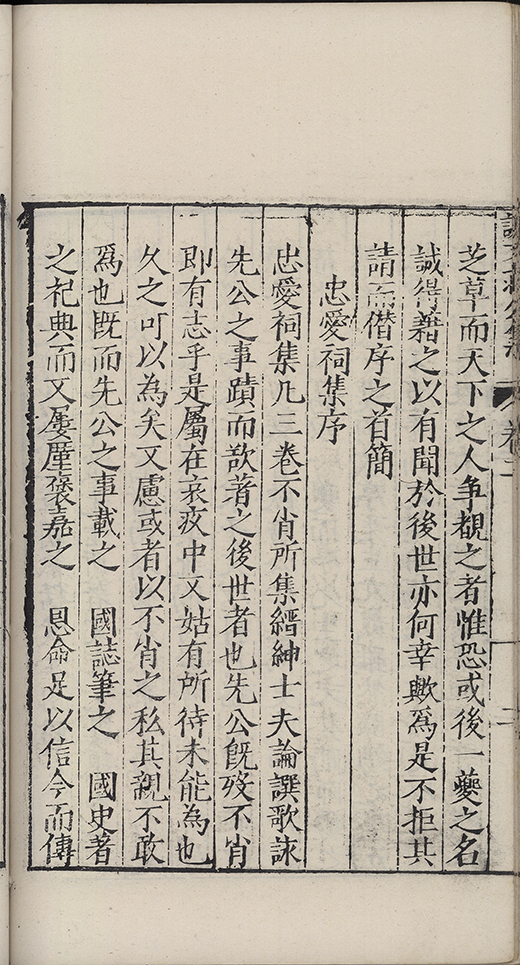 芝草而天下之人爭覩之者惟恐或後一夔之名
誠得藉之以有聞於後世亦何幸歟爲是不拒其
請而僣序之首簡
忠愛祠集序
忠愛祠集凡三卷不肖所集縉紳士夫論譔歌詠
先公之事蹟而欲著之後世者也先公旣歿不肖
即有志乎是屬在哀疚中又姑有所待未能為也
久之可以為矣又慮或者以不肖之私其親不敢
爲也旣而先公之事載之　國誌筆之　國史著
之祀典而又屢厪褒嘉之　恩命足以信今而傳
卷二
二